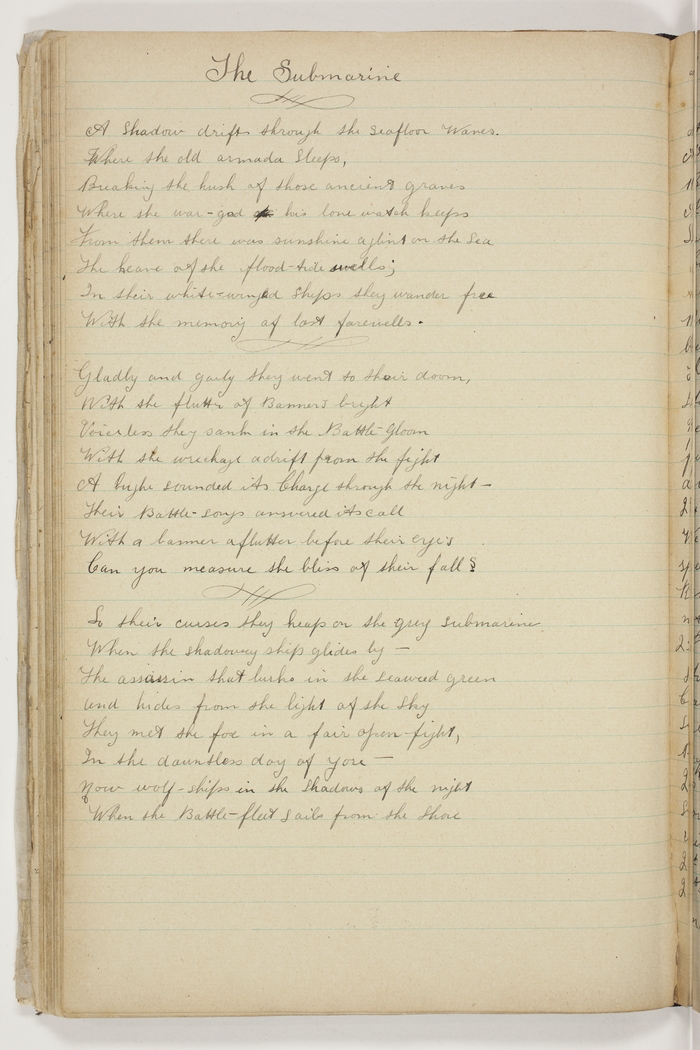 The Submarine
A Shadow drifts through the seafloor Waves.
Where the old armada Sleeps,
Breaking the hush of those ancient graves
Where the war-god his lone watch keeps
From them there was sunshine aglint on the Sea
The heave of the flood-tide swells;
In their white-winged Ships they wander free
With the memory of last farewells.
Gladly and gaily they went to their doom,
With the flutter of Banners bright
Voiceless they sank in the Battle-Gloom
With the wreckage adrift from the fight
A bugle sounded its Charge through the night -
Their Battle-songs answered its call
With a banner aflutter before their eyes
Can you measure the bliss of their fall?
So their curses they heap on the grey Submarine
When the shadowy ship glides by -
The assassin that lurks in the seaweed green
And hides from the light of the Sky
They met the foe in a fair open-fight,
In the dauntless day of yore -
Now wolf-ships in the Shadows of the night
When the Battle-fleet Sails from the Shore